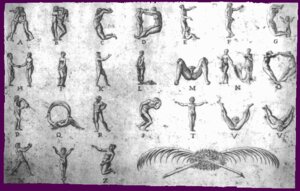 A B C D E G
H I K L M N
P Q R S T V V
Z